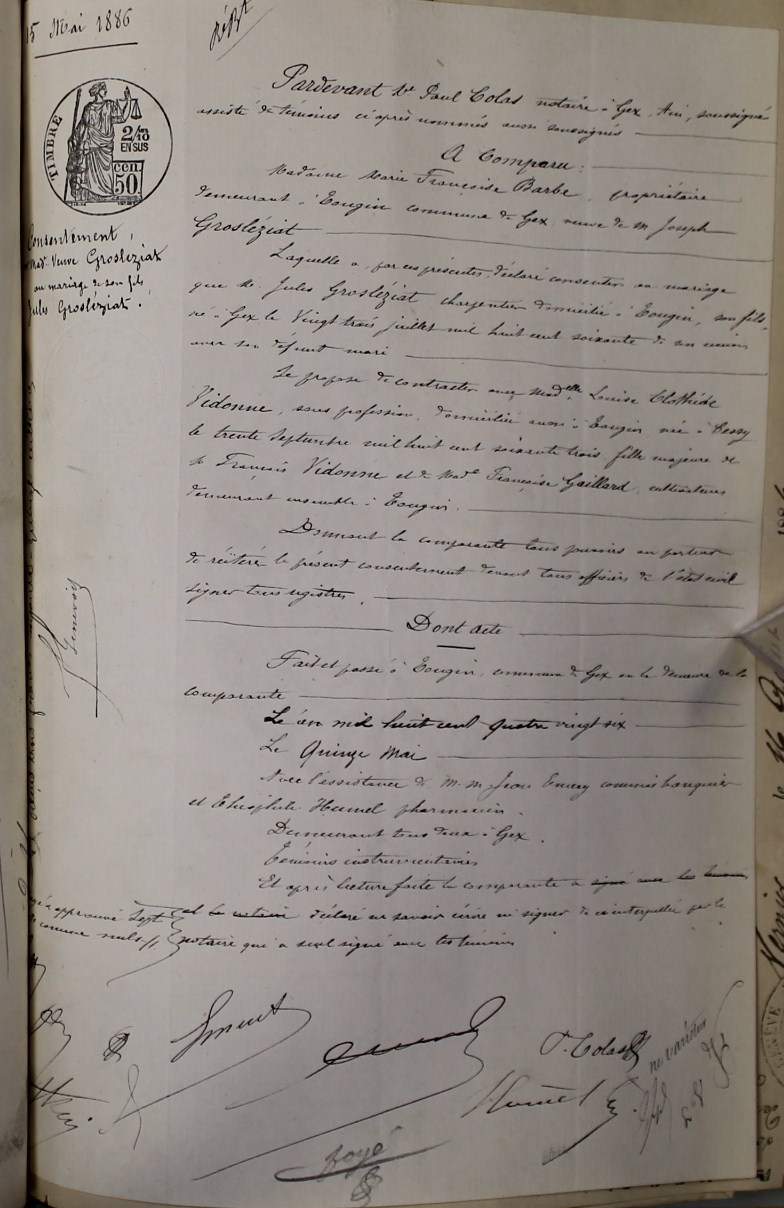 15 Mai 1886
TIMBRE
2/10 EN SUS
50 CEN
Consentement,
Mad. Veuve Grosléziat
au mariage de son fils
Jules Grosléziat.
Pardevant Me Paul Colas notaire à Gex, Ain, soussigné
assisté de témoins ci après nommés aussi soussignés
A Comparu :
Madame Marie Françoise Barbe, propriétaire
demeurant à Tougin commune de Gex, veuve de M Joseph
Grosléziat
Laquelle a, par ces présentes, déclaré consentir au mariage
que M. Jules Grosléziat charpentier domicilié à Tougin, son fils,
né à Gex le Vingt trois juillet mil huit cent soixante de son union
avec son défunt mari
Se propose de contracter avec Madelle Louise Clothilde
Vidonne, sans profession, domiciliée aussi à Tougin née à Cessy
le trente Septembre mil huit cent soixante trois fille majeure de
Mr François Vidonne et de Made Françoise Gaillard, cultivateurs
demeurant ensemble à Tougin.
Donnant la comparante tous pouvoirs au porteur
de réitéré le présent consentement devant tous officiers de l'état civil
signer tous registres.
Dont acte
Fait et passé à Tougin, commune de Gex en la demeure de la
comparante
L'an mil huit cent quatre vingt six
Le Quinze Mai
Avec l'assistance de M.M Jean Emery commis banquier
et Théophile Hamel pharmacien.
Demeurant tous deux à Gex.
Témoins instrumentaires
Et après lecture faite la comparante a signé avec les témoins
et le notaire déclaré ne savoir écrire ni signer de ce interpellée par le
notaire qui a seul signé avec les témoins
approuvé Sept
comme nuls
P. Colas
Hamel
ne varietur
GENÈVE